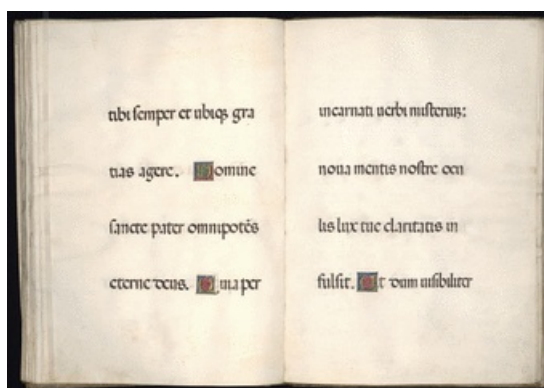 tibi semper et ubiqȝ gra
tias agere. Domine
sancte pater omnipotēs
eterne deus. Quia per
incarnati uerbi misterium:
noua mentis nostre ocu
lis lux tue claritatis in
fulsit. Ut dum uisibiliter